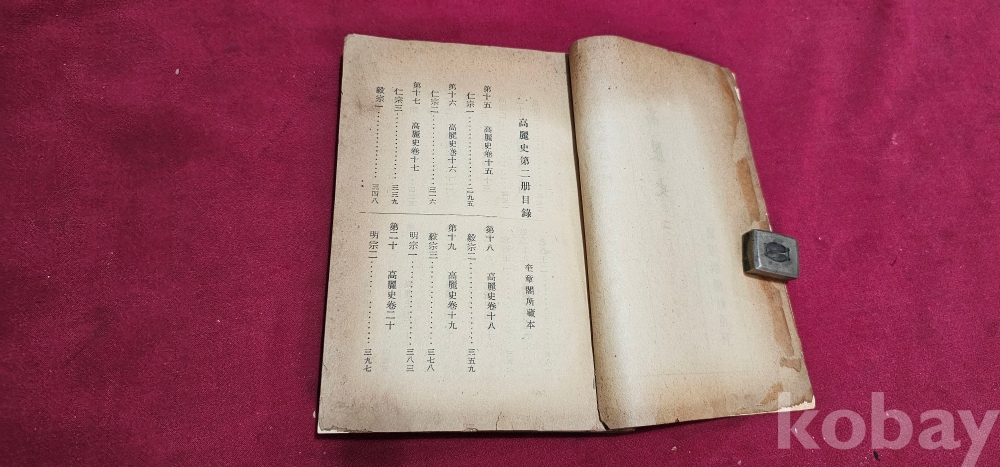 高麗史第二册目錄
奎章閣所藏本
第十五 高麗史卷十五
仁宗一……………二九五
第十六 高麗史卷十六
仁宗二……………三一六
第十七 高麗史卷十七
仁宗三……………三三九
毅宗一……………三四八
第十八 高麗史卷十八
毅宗二……………三五九
第十九 高麗史卷十九
毅宗三……………三七八
明宗一……………三八三
第二十 高麗史卷二十
明宗二……………三九七
kobay